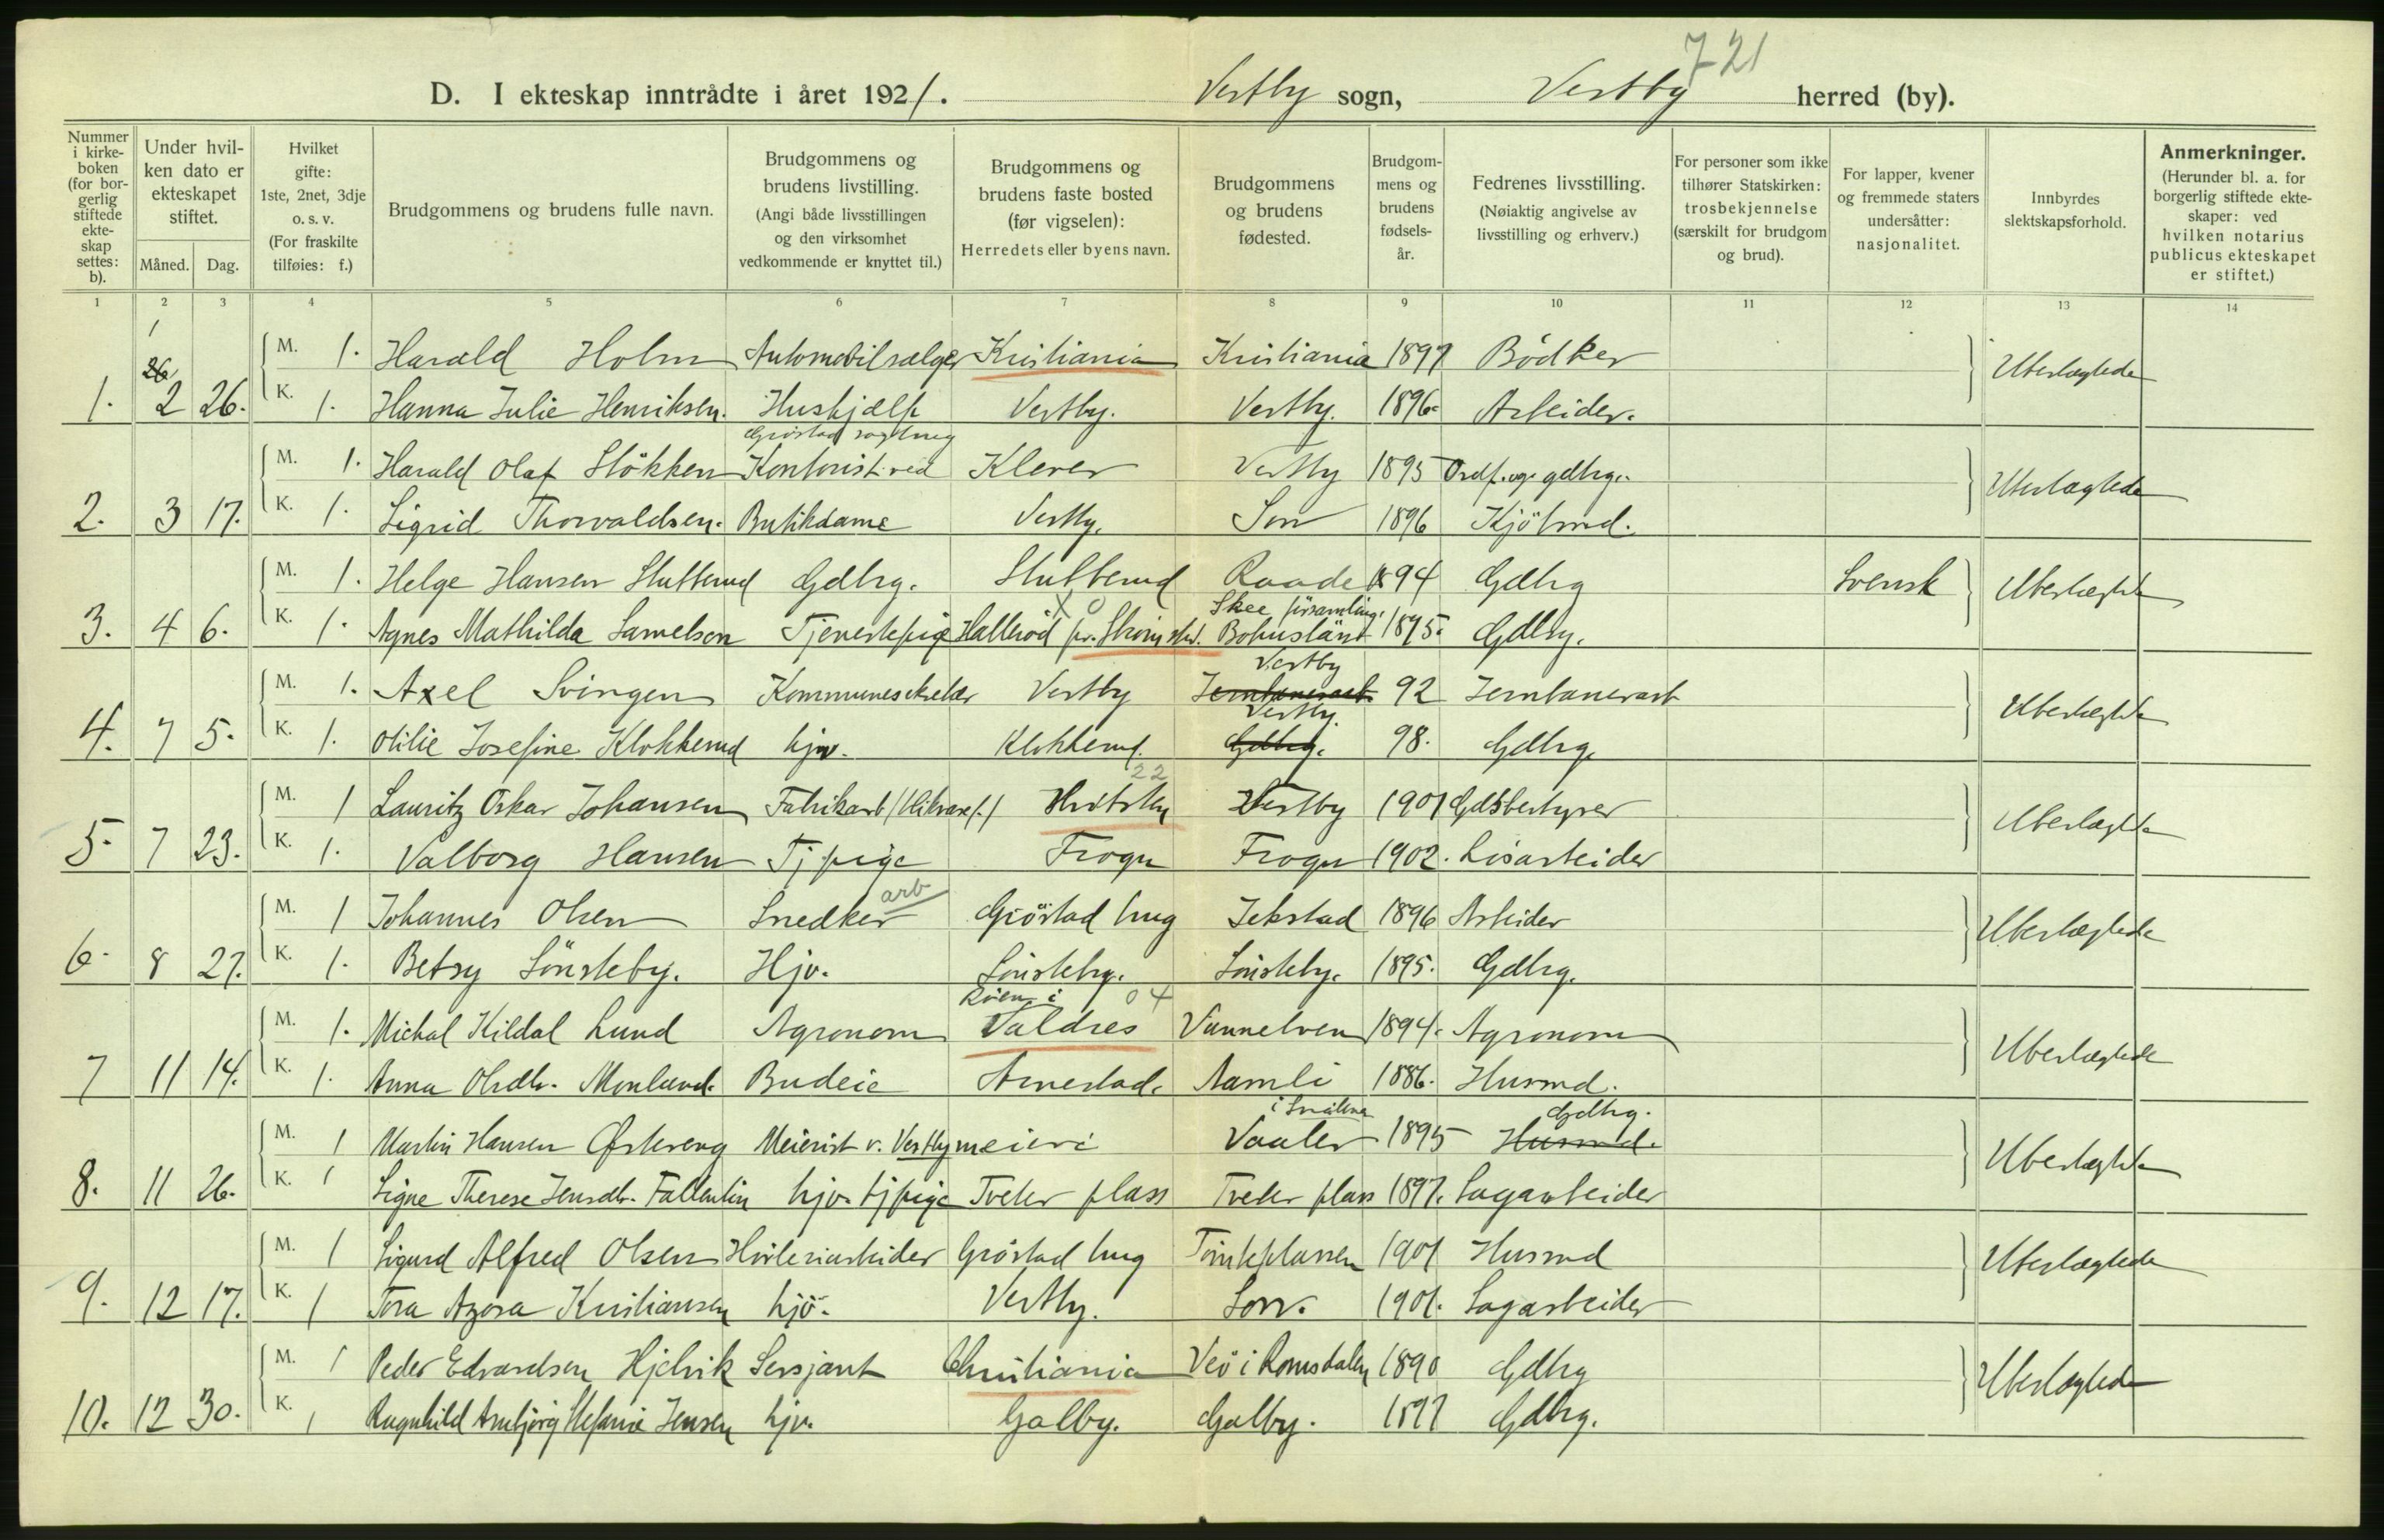 721
D. I ekteskap inntrådte i året 1921. Vestby sogn, Vestby herred (by).
Nummer i kirke-boken (for bor-gerlig stiftede ekte-skap settes: b).
Under hvil-ken dato er ekteskapet stiftet.
Måned. Dag.
Hvilket gifte: 1ste, 2net, 3dje o. s. v. (For fraskilte tilføies: f.)
Brudgommens og brudens fulle navn.
Brudgommens og brudens livstilling. (Angi både livsstillingen og den virksomhet vedkommende er knyttet til.)
Brudgommens og brudens faste bosted (før vigselen): Herredets eller byens navn.
Brudgommens og brudens fødested.
Brudgom-mens og brudens fødsels-år.
Fedrenes livsstilling. (Nøiaktig angivelse av livsstilling og erhverv.)
For personer som ikke tilhører Statskirken: trosbekjennelse (særskilt for brudgom og brud).
For lapper, kvener og fremmede staters undersåtter: nasjonalitet.
Innbyrdes slektskapsforhold.
Anmerkninger. (Herunder bl. a. for borgerlig stiftede ekte-skaper: ved hvilken notarius publicus ekteskapet er stiftet.)
1 2 3 4 5 6 7 8 9 10 11 12 13 14
M. 1. Harald Holm Automobilsælger Kristiania Kristiania 1897 Bödker Ubeslægtede
1. 2 26. K. 1. Hanna Julie Henriksen. Hushjælp Vestby. Vestby. 1896. Arbeider.
Gröstad sagbrug
M. 1. Harald Olaf Stökken Kontorist ved Klever Vestby 1895 Ordf. og gdbrg. Ubeslægtede
2. 3 17. K. 1. Sigrid Thorvaldsen. Butikdame Vestby. Son 1896 Kjöbmd.
M. 1. Helge Hansen Stubberud Gdbrg. Stubberud Raade 1894 Gdbrg Svensk Ubeslægtede
X 0 Skee församling.
3. 4 6. K. 1. Agnes Mathilda Samelson Tjenestepige Halleröd pr. Strömstad. Bohuslän 1895. Gdbrg.
Vestby
M. 1. Axel Svingen Kommunesekretær Vestby Jernbanearb. 92 Jernbanearb Ubeslægtede
Vestby.
4. 7 5. K. 1. Otilie Josefine Klokkerud hjv. Klokkerud. Gdbrg. 98. Gdbrg.
22
M. 1 Lauritz Oskar Johansen Fabrikarb Hvitsten Vestby 1901 Gdsbestyrer Ubeslægtede
5. 7 23. K. 1. Valborg Hansen Tj pige Frogn Frogn 1902. Lösarbeider
arb
M. 1 Johannes Olsen Snedker Gröstad brug Jekstad 1896 Arbeider Ubeslægtede
6. 8 27. K. 1. Betsy Sönsteby. Hjv. Sönsteby. Sönsteby. 1895. Gdbrg.
Röen i 04
M. 1. Michal Kildal Lund Agronom Valdres Vannelven 1894. Agronom Ubeslægtede
7 11 14. K. 1. Anna Olsdtr. Monland. Budeie Arnestad. Aamli 1886. Husmd.
i Smålene Gdbrg.
M. 1 Martin Hansen Østereng Meierist v. Vestby meieri Vaaler 1895 Husmd. Ubeslægtede
8. 11 26. K. 1 Signe Therese Jensdtr. Fallentin hjv. tj pige Tveter plass Tveter plass 1897. Sagarbeider
M. 1 Sigurd Alfred Olsen Hövleriarbeider Gröstad brug 1901 Husmd Ubeslægtede
9. 12 17. K. 1 Tora Azora Kristiansen hjv. Vestby. Son. 1901. Sagarbeider
M. 1 Peder Edvardsen Hjelvik Sersjant Christiania Veö i Romsdalen 1890 Gdbrg Ubeslægtede
10. 12 30. K. 1 Ragnhild Arnbjörg Stefanie Jensen hjv. Galby. Galby. 1897 Gdbrg.